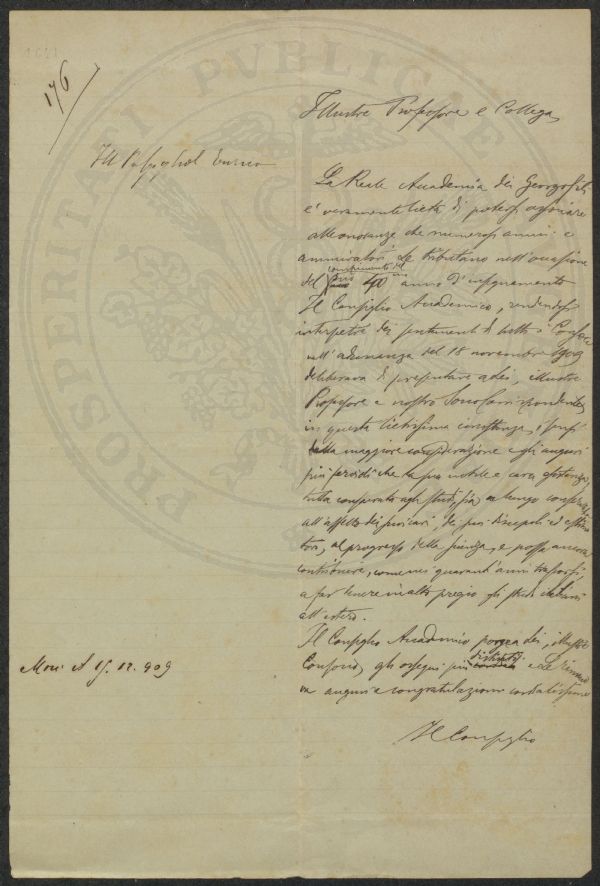 176
Illustre Professore e Collega,
La Reale Accademia dei Georgofili
è veramente lieta di potersi associare
alle onoranze che numerosi amici e
ammiratori Le tributano nell'occasione
compimento del
del 40 anno d'insegnamento
Il Consiglio Accademico, rendendosi
interpetre dei sentimenti di tutti i
nell'adunanza del 18 novembre 1909
deliberava di presentare a Lei, illustre
Professore e nostro Socio Corrispondente,
in questa lietissima circostanza, i sensi
maggiore considerazione e gli auguri
più fervidi che la sua nobile e cara
tutta consacrata agli studi, sia a lungo
all'affetto dei suoi cari, dei suoi discepoli ed
al progresso della scienza, e possa ancora
contribuire, come nei quarant'anni trascorsi,
a far tenere in alto pregio gli studi italiani
all'estero.
Il Consiglio Accademico porge a Lei, illustre
distinti
Consocio, gli ossequi più e Le
auguri e congratulazioni cordialissime
Il Consiglio
12. 909
PROSPERITATI PUBLICAE